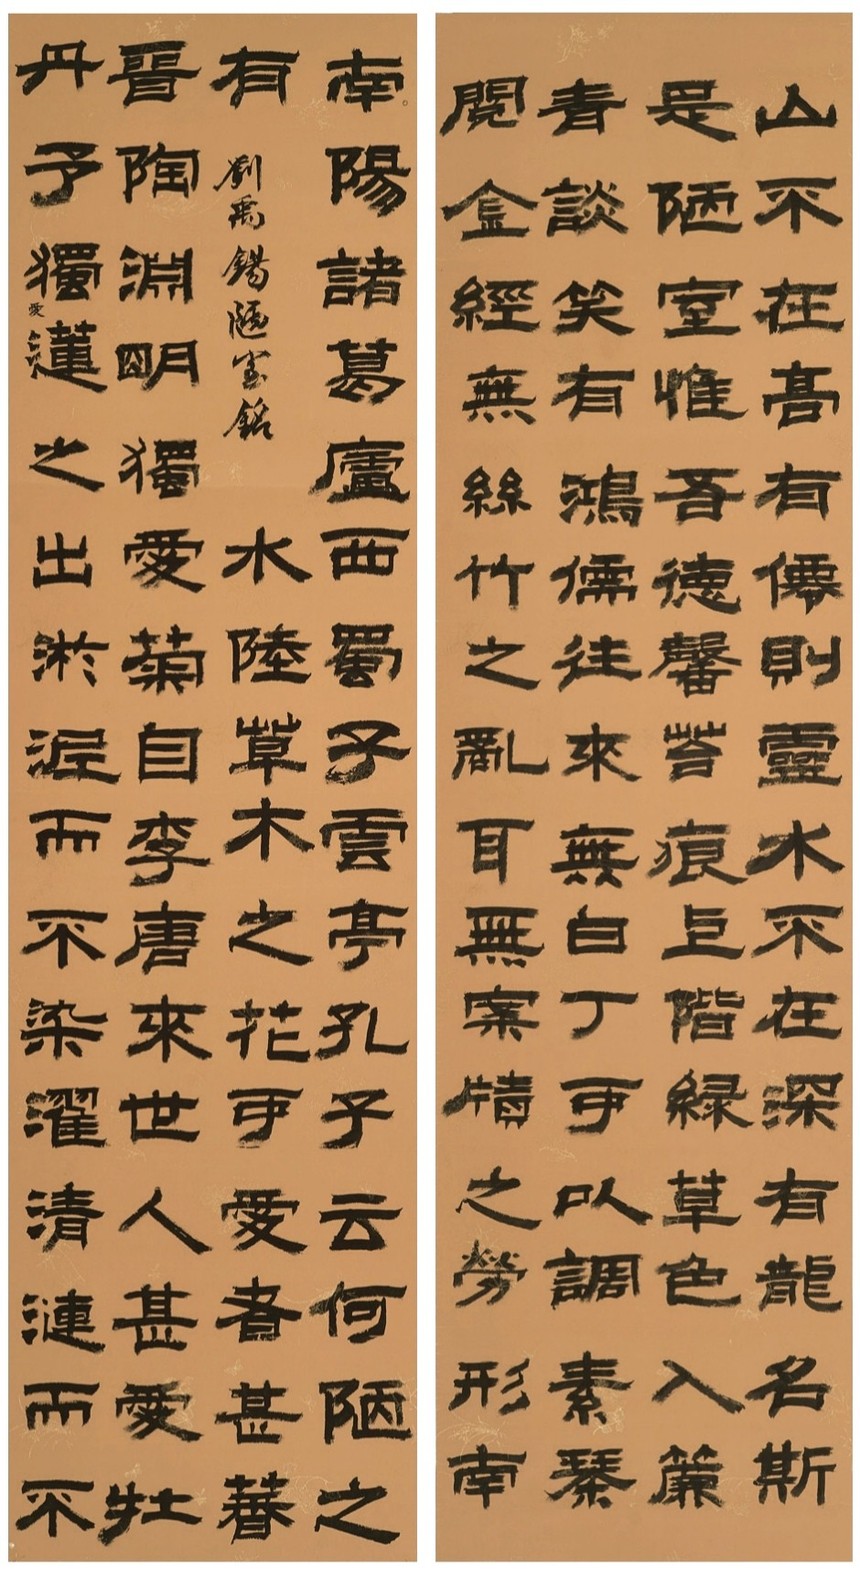 山不在高有僊則靈水不在深有龍名斯
是陋室惟吾德馨苔痕上階緑草色入簾
青談笑有鴻儒往來無白丁可以調素琴
閱金經無絲竹之亂耳無案牘之勞形南
南陽諸葛廬西蜀子雲亭孔子云何陋之
有 劉禹錫陋室銘 水陸草木之花可愛者甚蕃
晉陶淵明獨愛菊自李唐來世人甚愛牡
丹予獨愛蓮之出淤泥而不染濯清漣而不